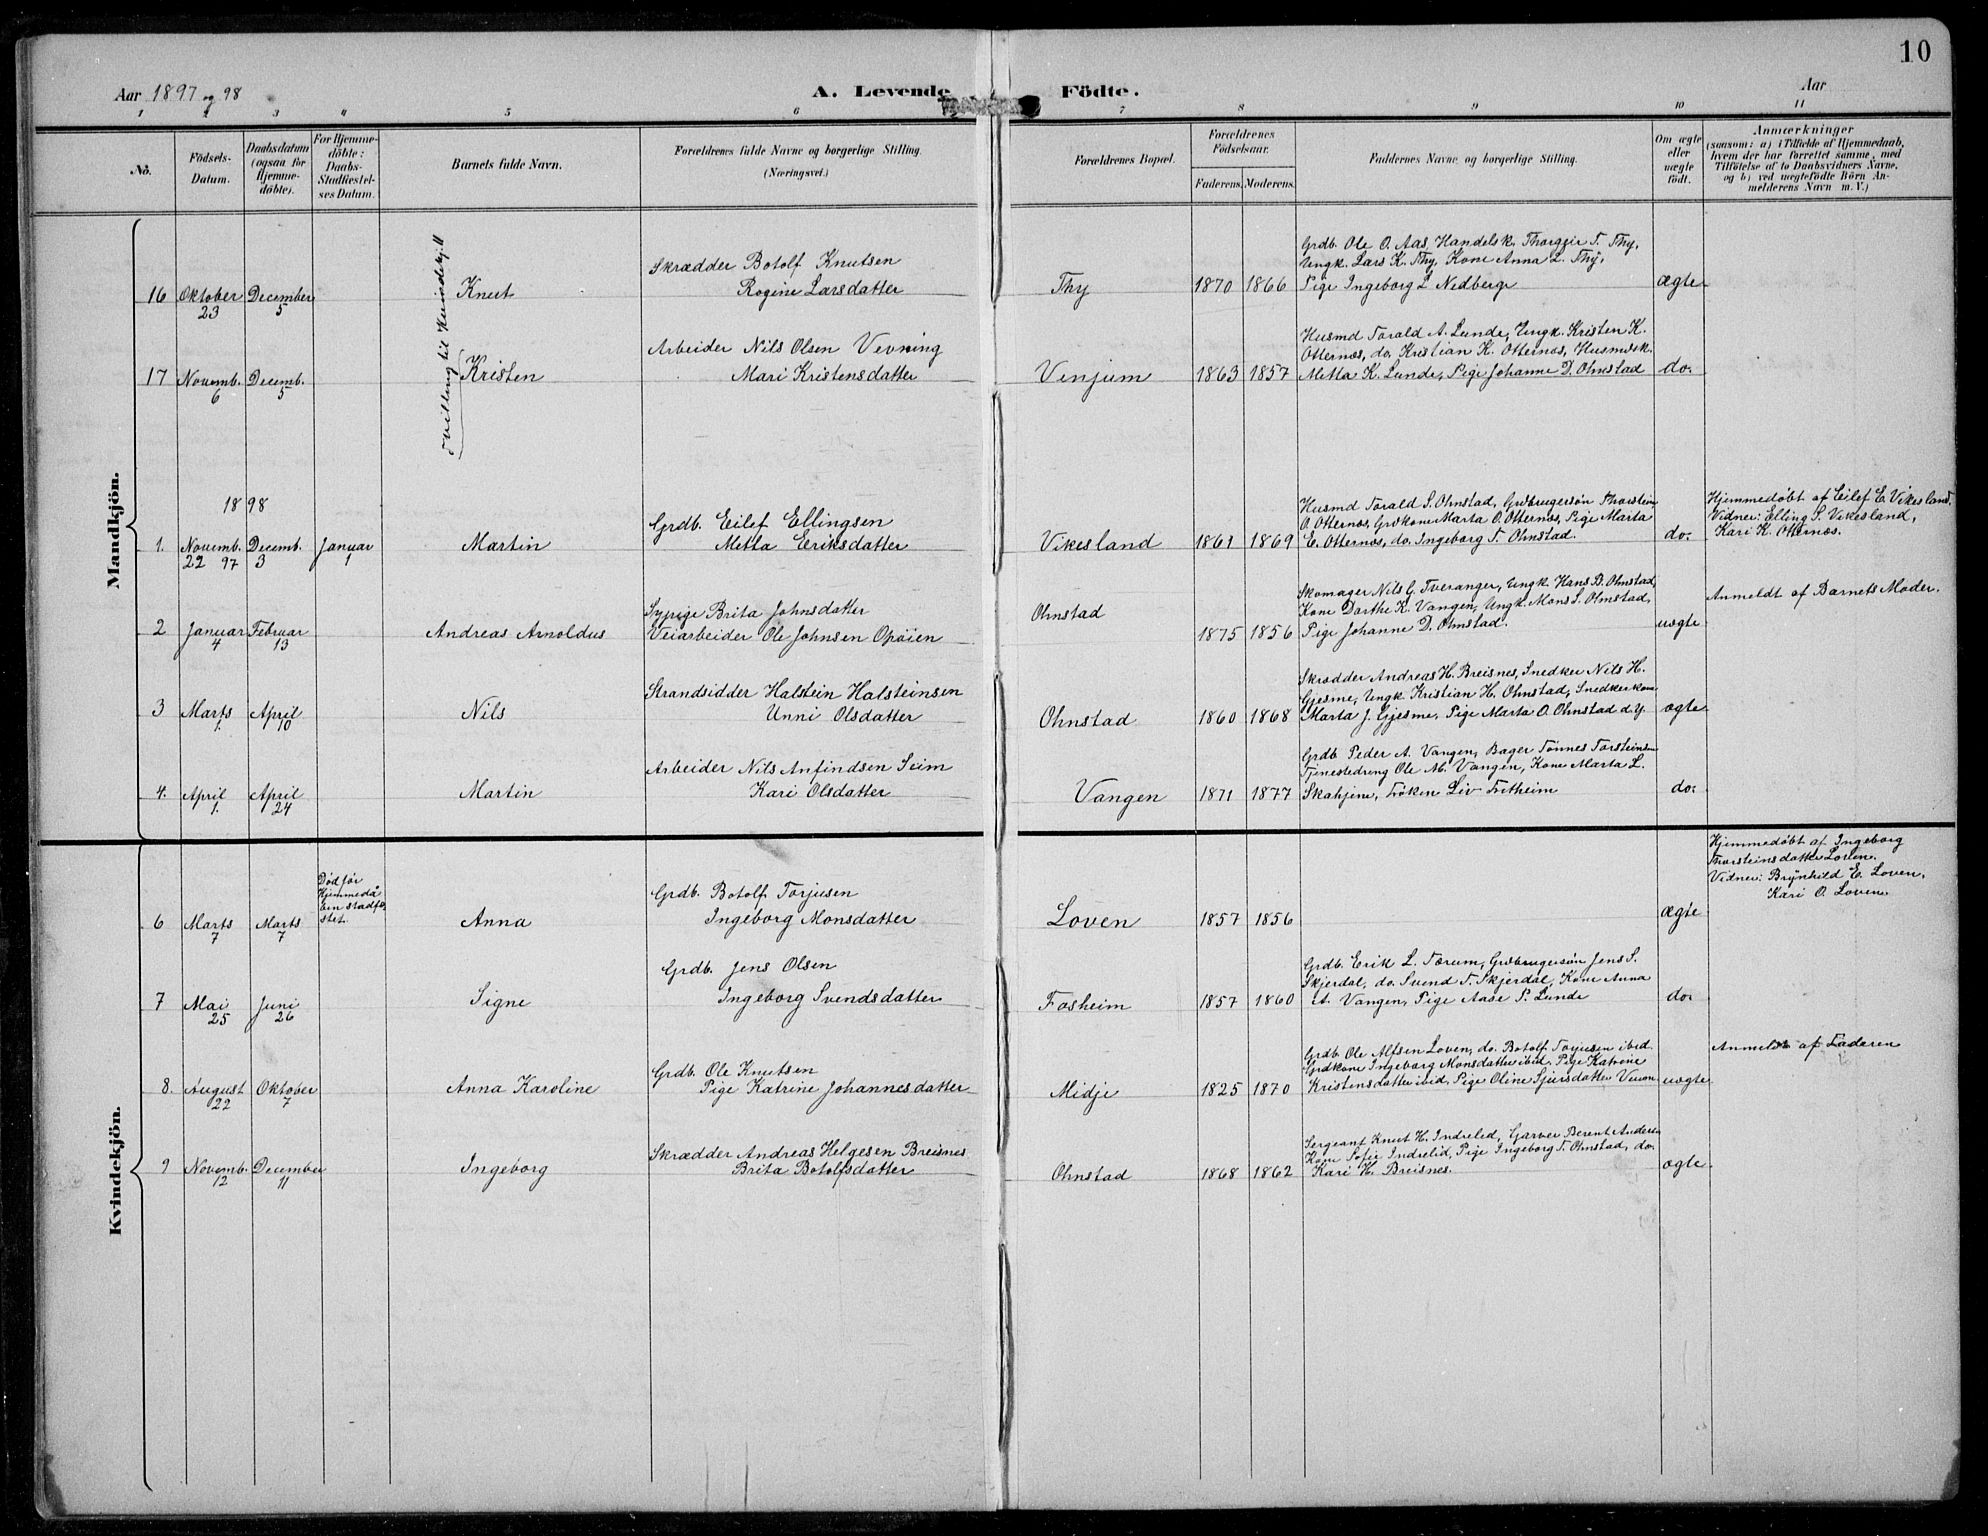 10
Aar 1897 og 98
A. Levende Födte.
Aar
1 2 3 4 5 6 7 8 9 10 11
No.
Födsels-Datum.
Daabsdatum (ogsaa for Hjemme-döbte).
For Hjemme-döbte: Daabs-Stadfæstel-ses Datum.
Barnets fulde Navn.
Forældrenes fulde Navne og borgerlige Stilling. (Næringsvei.)
Forældrenes Bopæl.
Forældrenes Födselsaar.
Faderens. Moderens.
Faddernes Navne og borgerlige Stilling.
Om ægte eller uægte födt.
Anmærkninger
(saasom: a) i Tilfælde af Hjemmedaab,
hvem der har forrettet samme, med
Tilföielse af to Daabsvidners Navne,
og b) ved uægtefödte Börn An-
melderens Navn m. V.)
Mandkjön.
Skrædder Botolf Knutsen
Grdb. Ole O. Aas, Handelsk. Thorgeir T. Thy,
Ungk. Lars K. Thy, Kone Anna L. Thy,
16 Oktober 23 December 5 Knut Rogine Larsdatter Thy 1870 1866 Pige Ingeborg L Nedberge ægte
Tvilling til Kvindekj. 11
Arbeider Nils Olsen Vevning
Husmd Torald A. Lunde, Ungk. Kristen K.
Otternes, do. Kristian K. Otternes, Husmdsk.
17 Novemb. 6 Decemb. 5 Kristen Mari Kristensdatter Venjum 1863 1857 Metta K. Lunde, Pige Johanne D. Ohnstad do.
1898
Grdb. Eilef Ellingsen
Husmd Torald S. Ohnstad, Grdbrugersøn Thorstein
O. Otternes, Grdkone Marta O. Otternes, Pige Marta
Hjemmedøbt af Eilef E. Vikesland.
Vidner: Elling S. Vikesland,
Kari K. Otternes.
1. Novemb. 22 97 Decemb. 3 Januar 1 Martin Metta Eriksdatter Vikesland 1861 1869 E. Otternes, do. Ingeborg T. Ohnstad. do.
Sypige Brita Johnsdatter
Skomager Nils G. Tveranger, Ungk. Hans B. Ohnstad,
Kone Dorthe K. Vangen, Ungk. Mons S. Ohnstad,
Anmeldt af Barnets Moder.
2 Januar 4 Februar 13 Andreas Arnoldus Veiarbeider Ole Johnsen Opøien Ohnstad 1875 1856 Pige Johanne D. Ohnstad. uægte
Strandsidder Halstein Halsteinsen
Skrædder Andreas H. Breisnes, Snedker Nils H.
Gjesme, Ungk. Kristian H. Ohnstad, Snedkerkone
3 Marts 1. April 10 Nils Unni Olsdatter Ohnstad 1860 1868 Marta J. Gjesme, Pige Marta O. Ohnstad d.y. ægte
Arbeider Nils Anfindsen Seim
Grdb. Peder A. Vangen, Bager Tønnes Torsteinsen
Tjenestedreng Ole M. Vangen, Kone Marta L.
4. April 1. April 24 Martin Kari Olsdatter Vangen 1871 1877 Skahjem, Frøken Liv Fretheim do.
Kvindekjön.
Død før Hjemmedaaben stadfæstet.
Grdb. Botolf Torjusen
Hjemmedøbt af Ingeborg
Thorsteinsdatter Loven.
Vidner: Brynhild E. Loven,
Kari O. Loven.
6 Marts 7 Marts 7 Anna Ingeborg Monsdatter Loven 1857 1856 ægte
Grdb. Jens Olsen
Grdb. Erik L. Tærum, Grdbrugersøn Jens S.
Skjerdal, do. Svend T. Skjerdal, Kone Anna
7 Mai 25 Juni 26 Signe Ingeborg Svendsdatter Fosheim 1857 1860 A. Vangen, Pige Aase P. Lunde do.
Grdb. Ole Knutsen
Grdb. Ole Alfsen Loven, do. Botolf Torjusen ibid.
Grdkone Ingeborg Monsdatter ibid, Pige Katrine
Anmeldt af Faderen
8. August 22 Oktober 7 Anna Karoline Pige Katrine Johannesdatter Midje 1825 1870 Kristensdatter ibid, Pige Oline Sjursdatter uægte
Skrædder Andreas Helgesen Breisnes
Sergeant Knut H. Indrelid, Garver Berent Andersen
Kone Sofie Indrelid, Pige Ingeborg T. Ohnstad, do.
9 Novemb. 12 December 11 Ingeborg Brita Botolfsdatter Ohnstad 1868 1862 Kari H. Breisnes. ægte